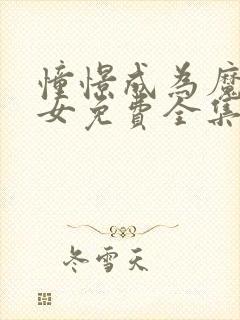 憧憬成为魔
女免费全集
冬雪天